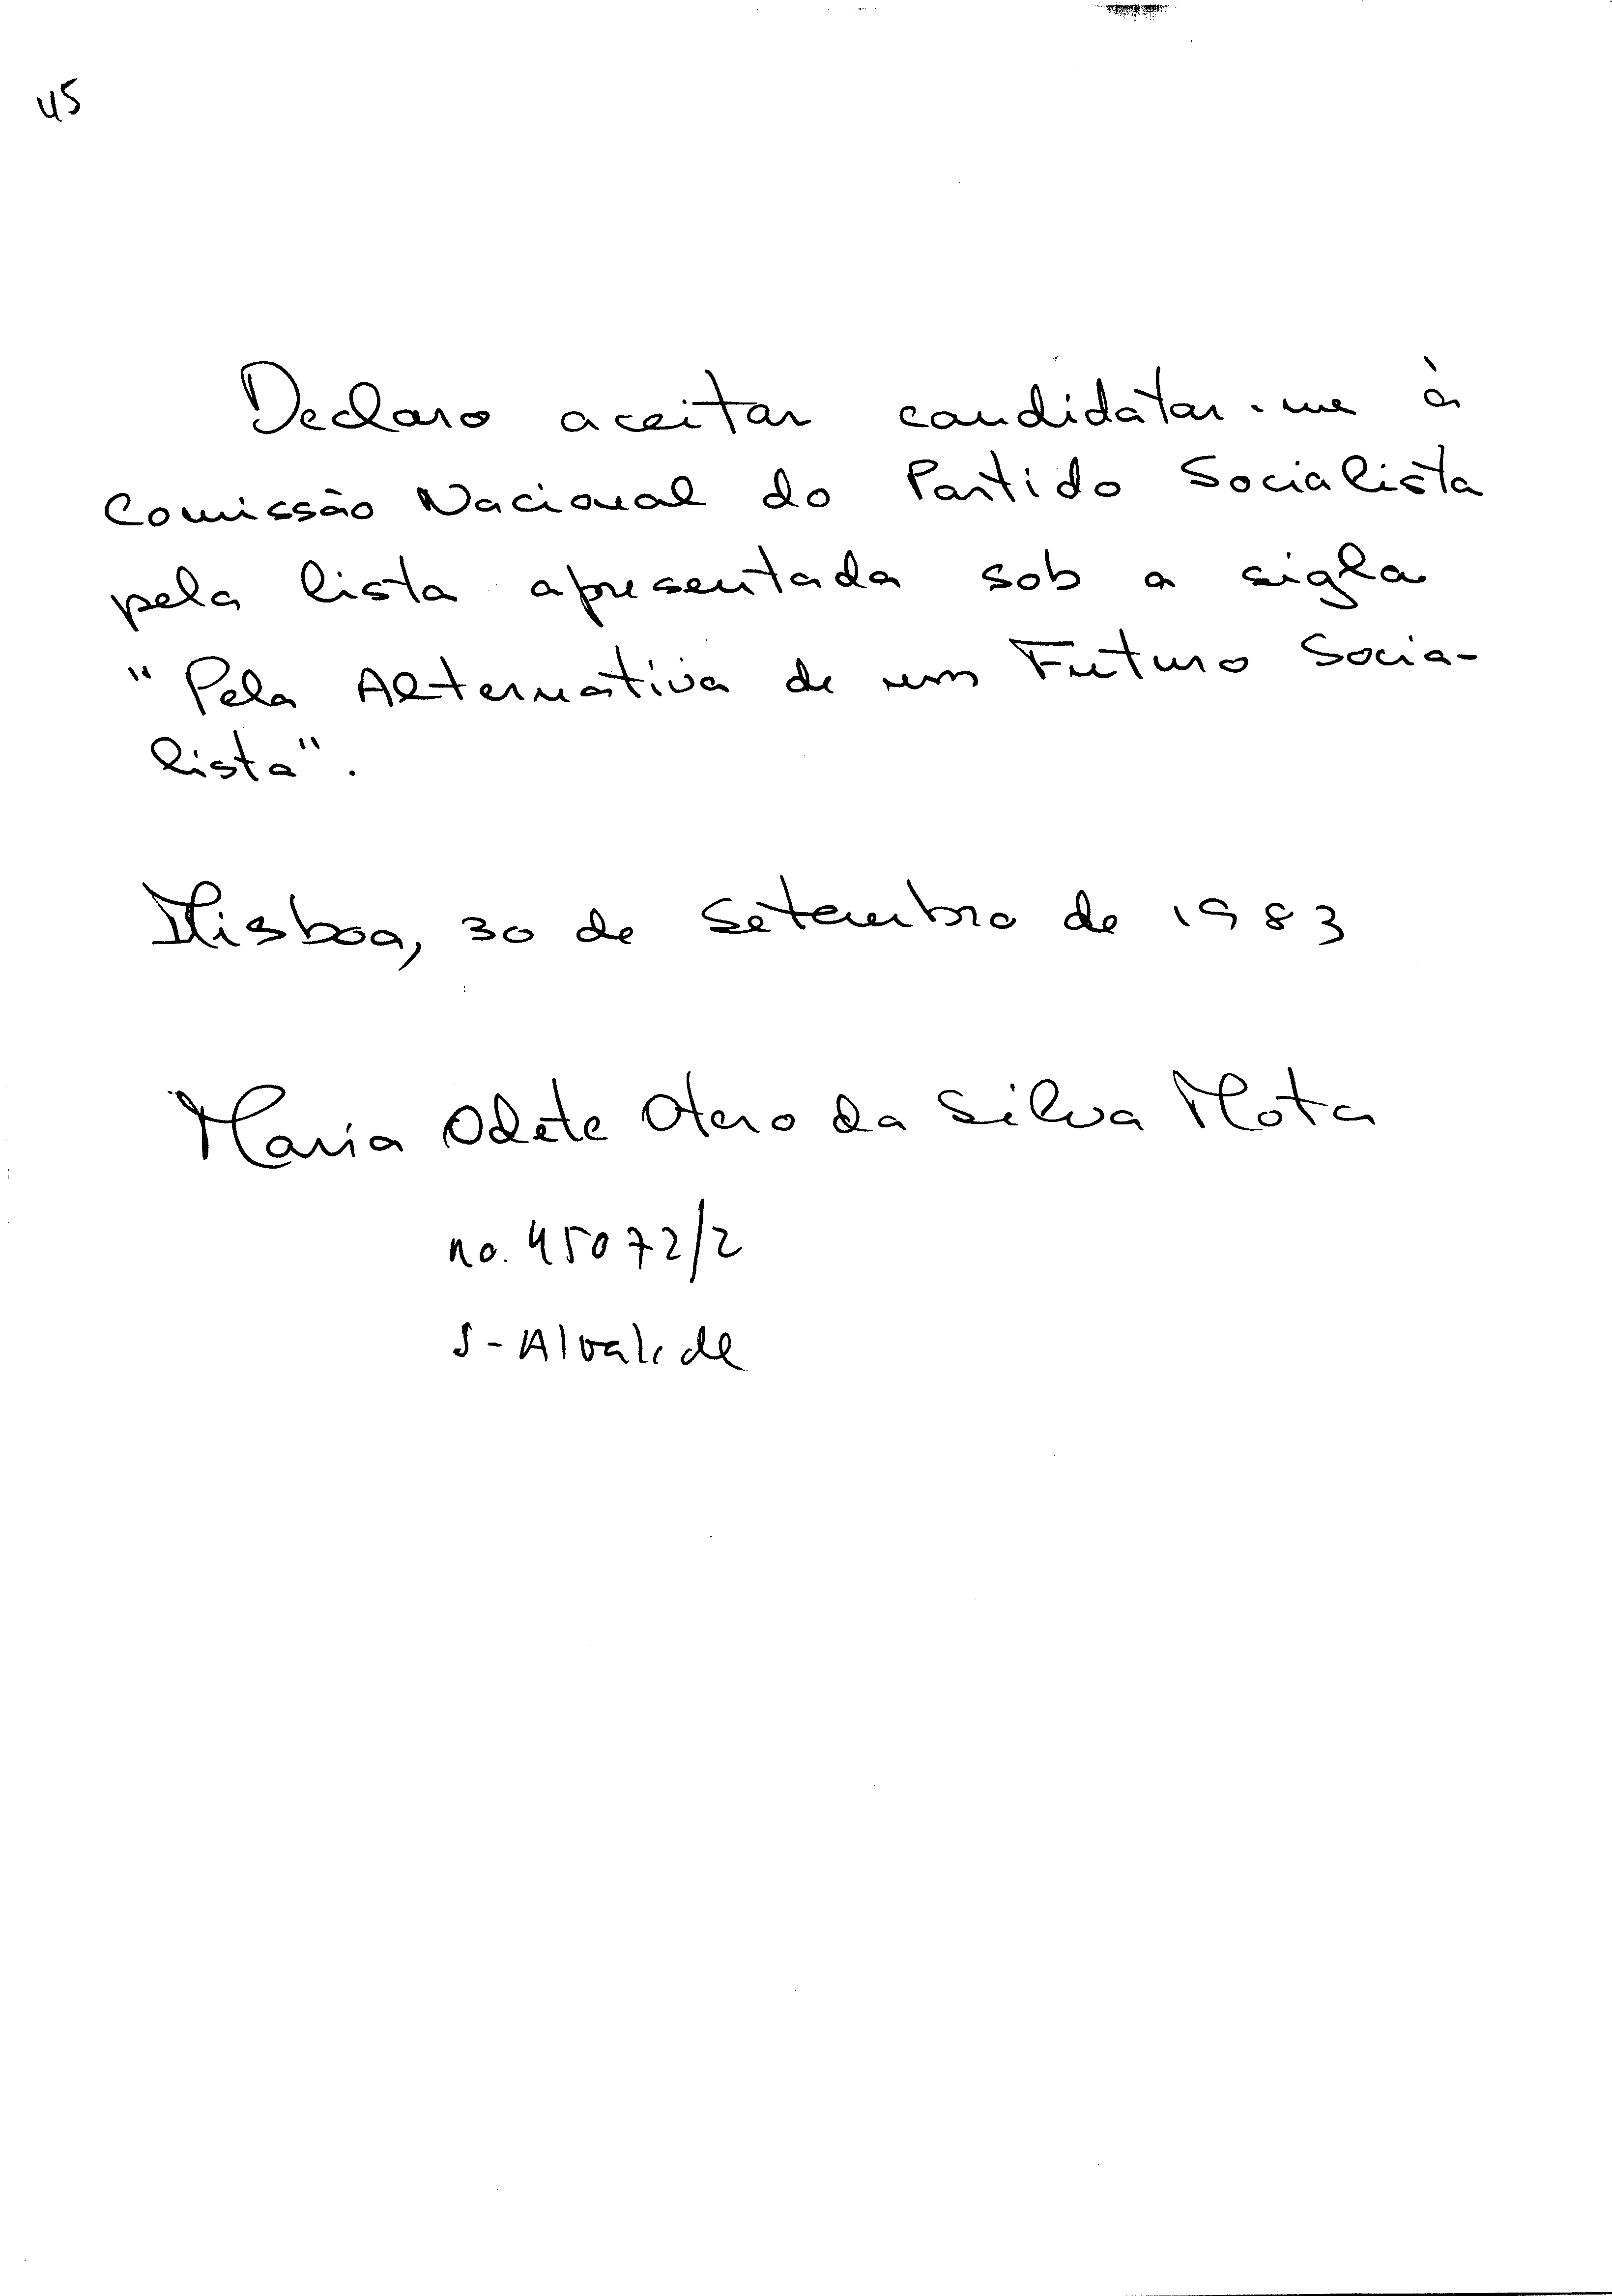 45
Declaro aceitar candidatar-me à
Comissão Nacional do Partido Socialista
pela lista apresentada sob a sigla
"Pela Alternativa de um Futuro Socia-
lista".
Lisboa, 30 de Setembro de 1983
Maria Odete Otero da Silva Mota
no. 45072/2
S-Alvalade